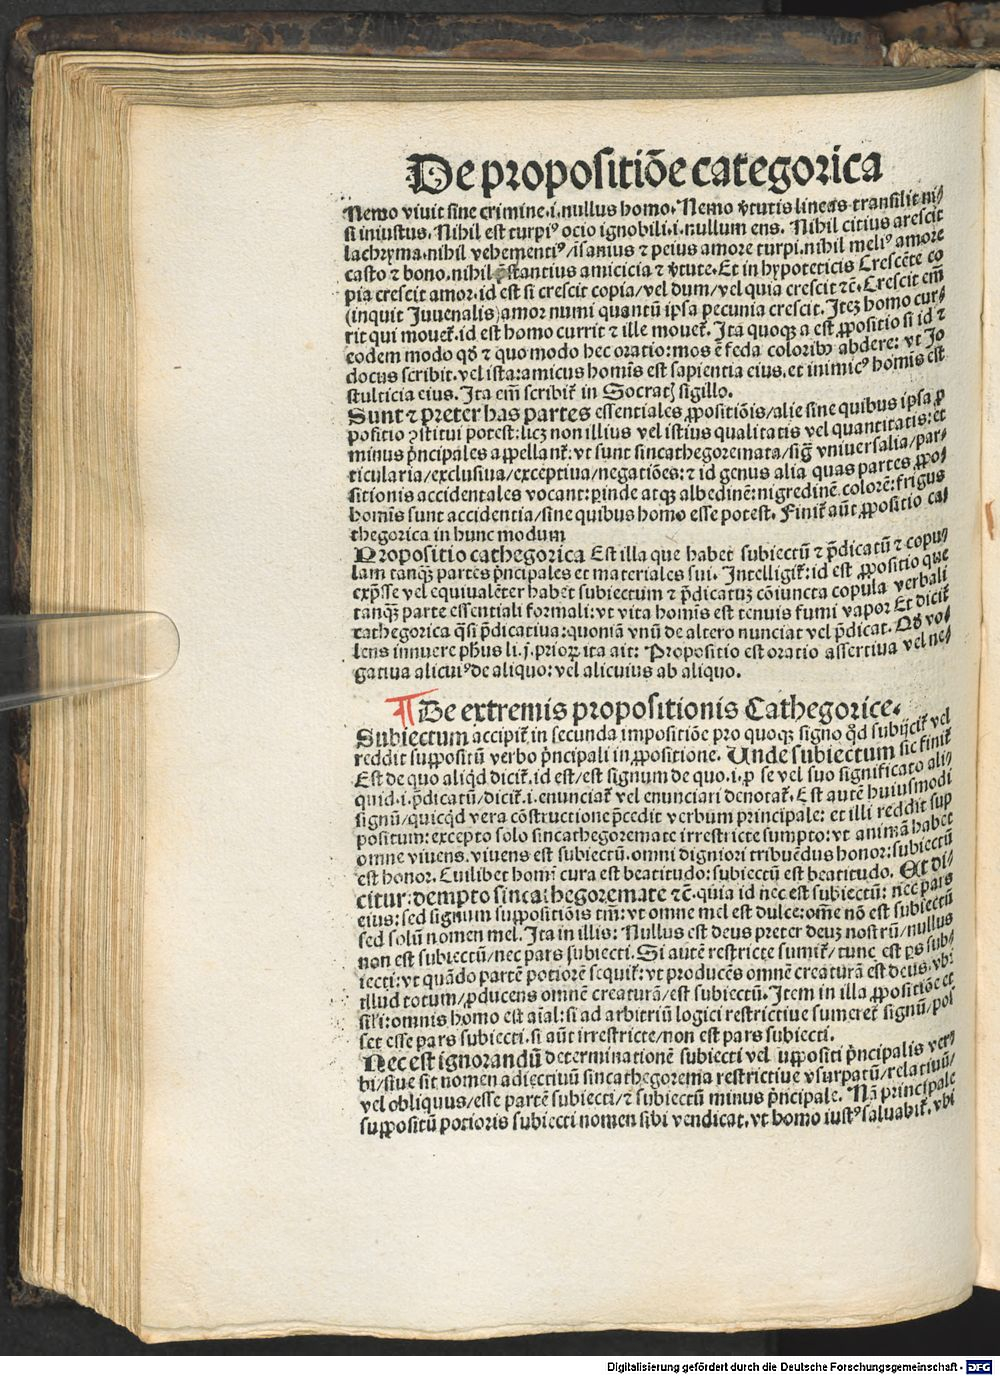 De propositiōe categorica
Nemo vivit sine crimine.i.nullus homo. Nemo v̄tutis lineas transilit ni/
si iniustus. Nihil est turpiꝰ ocio ignobili.i.nullum ens. Nihil citius arescit
lachryma.nihil vehementiꝰ/īsanius ⁊ peius amore turpi.nihil meliꝰ amore
casto ⁊ bono.nihil p̄stantius amicicia ⁊ v̄tute. Et in hypoteticis Crescēte co
pia crescit amor.id est si crescit copia/vel dum/vel quia crescit ⁊c̄. Crescit em̄
(inquit Juuenalis)amor numi quantū ipsa pecunia crescit. Iteꝫ homo cur/
rit qui mouet᷑.id est homo currit ⁊ ille mouet᷑. Ita quoqꝫ a est ꝓpositio si id ⁊
eodem modo qđ ⁊ quo modo hec oratio:mos ē feda coloribꝫ abdere: vt Jo
docus scribit.vel ista:amicus homīs est sapientia eius.et inimicꝰ homīs est
stulticia eius. Ita em̄ scribit᷑ in Socratꝭ sigillo.
Sunt ⁊ preter has partes essentiales ꝓpositiōis/alie sine quibus ipsa ꝓ
positio ꝯstitui potest:licꝫ non illius vel istius qualitatis vel quantitatis:et
minus p̄ncipales appellant᷑: vt sunt sincathegoremata/sigͣ vniuersalia/par/
ticularia/exclusiua/exceptiua/negatiōes:⁊ id genus alia quas partes ꝓpo/
sitionis accidentales vocant:ꝑinde atqꝫ albedinē:nigredinē colorē:frigus
homīs sunt accidentia/sine quibus homo esse potest. Finit᷑ aūt ꝓpositio ca/
thegorica in hunc modum
Propositio cathegorica Est illa que habet subiectū ⁊ p̄dicatū ⁊ copu/
lam tanqꝫ partes p̄ncipales et materiales sui. Intelligit᷑:id est ꝓpositio que
exp̄sse vel equiualēter habet subiectum ⁊ p̄dicatuꝫ cōiuncta copula verbali
tanqꝫ parte essentiali formali:vt vita homīs est tenuis fumi vapor Et dicit᷑
cathegorica q̄si p̄dicatiua:quoniā vnū de altero nunciat vel p̄dicat. Qđ vo/
lens innuere ph̄us li.j.prioꝝ ita ait: Propositio est oratio assertiua vel ne/
gatiua alicuiꝰde aliquo:vel alicuius ab aliquo.
¶ De extremis propositionis Cathegorice.
Subiectum accipit᷑ in secunda impositiōe pro quoqꝫ signo qđ subijcit᷑ vel
reddit suppositū verbo p̄ncipali in ꝓpositione. Unde subiectum sic finit᷑
Est de quo aliqd dicit᷑.id est/est signum de quo.i.ꝑ se vel suo significato ali/
quid.i.p̄dicatū/dicit᷑.i.enunciat᷑ vel enunciari denotat᷑. Est autē huiusmodi
signū/quicqd vera cōstructione p̄cedit verbum principale: et illi reddit sup
positum:excepto solo sincathegoremate irrestricte sumpto:vt animā habet
omne viuens.viuens est subiectū.omni digniori tribuēdus honor:subiectū
est honor. Cuilibet homī cura est beatitudo:subiectū est beatitudo. Et di/
citur:dempto sincathegoremate ⁊c̄.quia id nec est subiectū: nec pars
eius:sed signum suppositiōis tm̄:vt omne mel est dulce:om̄e nō est subiectū
sed solū nomen mel. Ita in illis: Nullus est deus preter deuꝫ nostrū/nullus
non est subiectū/nec pars subiecti. Si autē restricte sumit᷑/tunc est ꝑs sub/
iecti:vt quādo partē potiorē sequit᷑:vt producēs omnē creaturā est deus.vbi
illud totum/ꝓducens omnē creaturā/est subiectū. Item in illa ꝓpositiōe et
sil̄i:omnis homo est aīal:si ad arbitriū logici restrictiue sumeret᷑ signū/pos
set esse pars subiecti.si aūt irrestricte/non est pars subiecti.
Nec est ignorandū determinationē subiecti vel suppositi p̄ncipalis ver/
bi/siue sit nomen adiectiuū sincathegorema restrictiue vsurpatū/relatiuū/
vel obliquus/esse partē subiecti/⁊ subiectū minus p̄ncipale. Nā principale
suppositū potioris subiecti nomen sibi vendicat.vt homo iustꝰ saluabit᷑.vbi
Digitalisierung gefördert durch die Deutsche Forschungsgemeinschaft - DFG